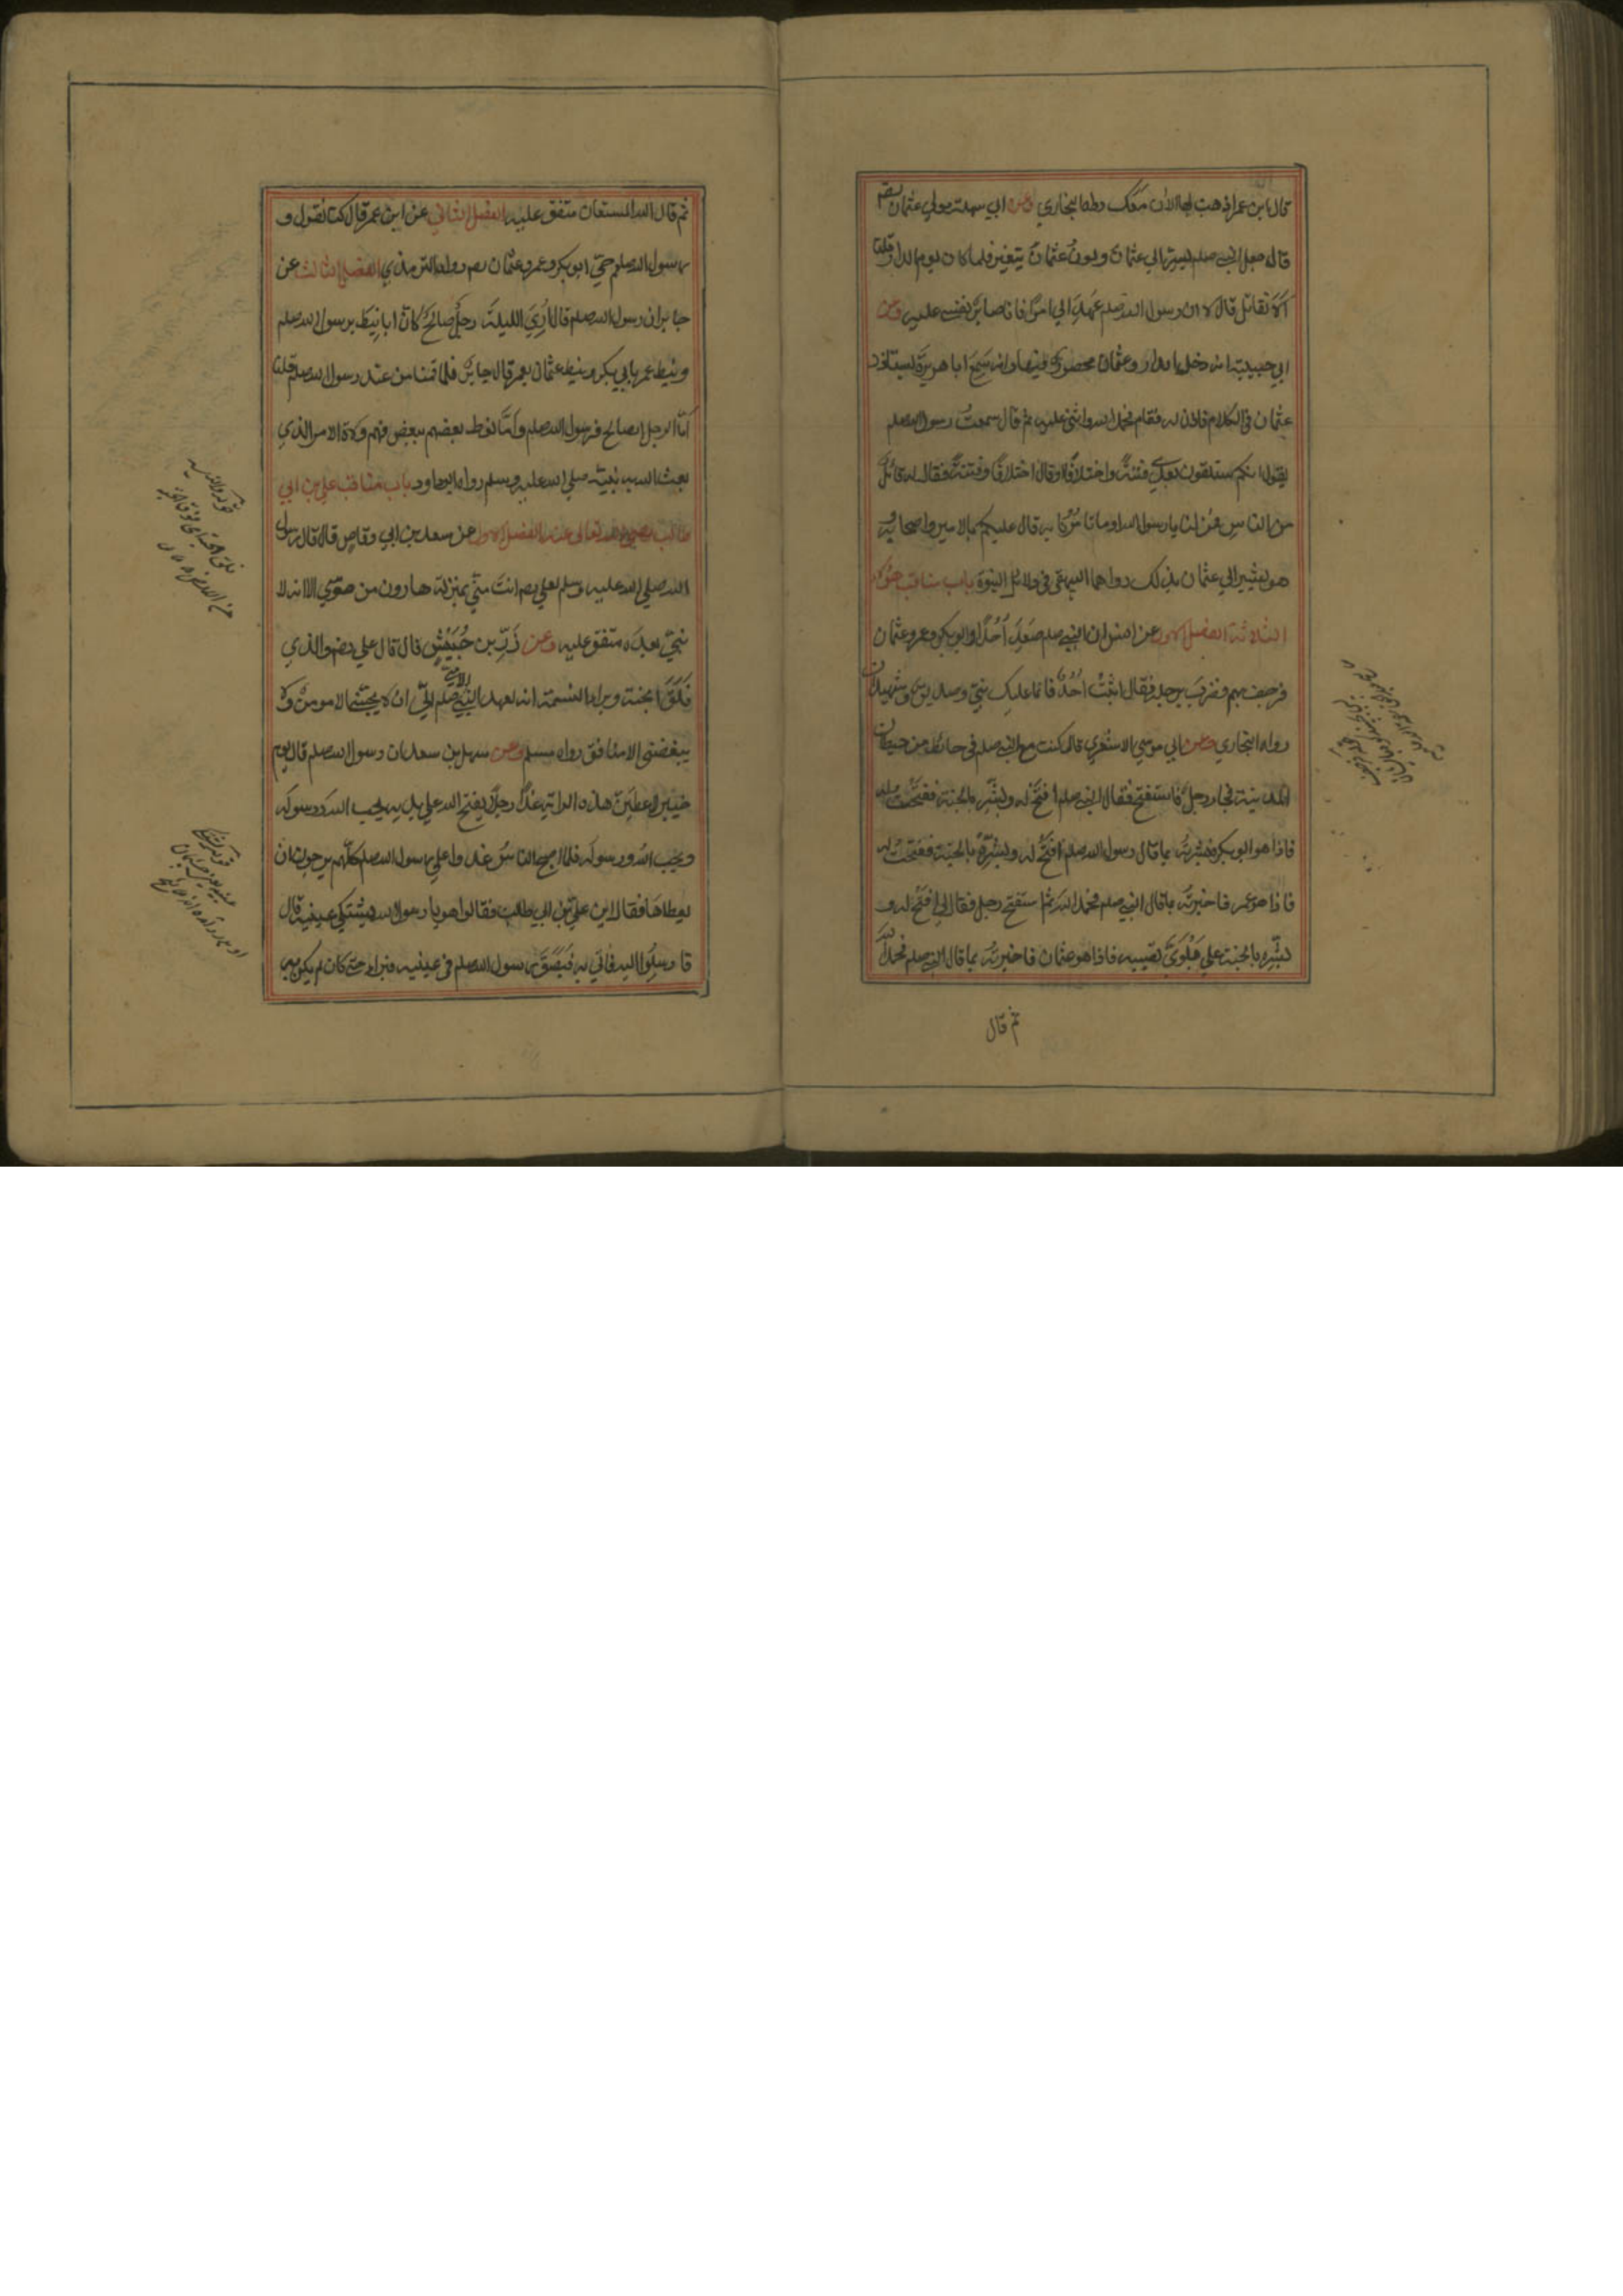 قال ابن عمر اذهب بها الان معك رواه البخاري وعن ابي سهلة مولي عثمان رضم
قال جعل النبي صلعم يسر الي عثمان ولون عثمان يتغير فلما كان يوم الدار قلنا
الا نقاتل قال لا ان رسول الله صلعم عهد الي امرا فانا صابر نفسي عليه وعن
ابي حبيبة انه دخل الدار وعثمان محصور فيها وانه سمع ابا هريرة يستاذن
عثمان في الكلام فاذن له فقام فحمد الله واثني عليه ثم قال سمعت رسول الله صلعم
يقول انكم ستلقون بعدي فتنة واختلافا او قال اختلافا وفتنة فقال له قائل
من الناس فمن لنا يا رسول الله او ما تامرنا به قال عليكم بالامير واصحابه و
هو يشير الي عثمان بذلك رواهما البيهقي في دلائل النبوة باب مناقب هؤلاء
الثلاثة الفصل الاول عن انس ان النبي صلعم صعد احدا وابو بكر وعمر وعثمان
فرجف بهم فضربه برجله فقال اثبت احد فانما عليك نبي وصديق وشهيدان
رواه البخاري وعن ابي موسي الاشعري قال كنت مع النبي صلعم في حائط من حيطان
المدينة فجاء رجل فاستفتح فقال النبي صلعم افتح له وبشره بالجنة ففتحت له
فاذا هو ابو بكر فبشرته بما قال رسول الله صلعم افتح له وبشره بالجنة ففتحت له
فاذا هو عمر فاخبرته بما قال النبي صلعم فحمد الله ثم استفتح رجل فقال لي افتح له و
بشره بالجنة علي بلوي تصيبه فاذا هو عثمان فاخبرته بما قال النبي صلعم فحمد الله
ثم قال
ثم قال الله المستعان متفق عليه الفصل الثاني عن ابن عمر قال كنا نقول و
رسول الله صلعم حي ابو بكر وعمر وعثمان رضم رواه الترمذي الفصل الثالث عن
جابر ان رسول الله صلعم قال اري الليلة رجل صالح كان ابا نيط برسول الله صلعم
ونيط عمر بابي بكر ونيط عثمان بعمر قال جابر فلما قمنا من عند رسول الله صلعم قلنا
اما الرجل الصالح فرسول الله صلعم واما نوط بعضهم ببعض فهم ولاة الامر الذي
بعث الله به نبيه صلي الله عليه وسلم رواه ابو داود باب مناقب علي بن ابي
طالب رضي الله تعالي عنه الفصل الاول عن سعد بن ابي وقاص قال قال رسول
الله صلي الله عليه وسلم لعلي رضم انت مني بمنزلة هارون من موسي الا انه لا
نبي بعدي متفق عليه وعن زر بن حبيش قال قال علي رضم والذي
فلق الجنة وبرا النسمة انه لعهد النبي الامي صلعم الي ان لا يحبني الا مومن ولا
يبغضني الا منافق رواه مسلم وعن سهل بن سعد ان رسول الله صلعم قال يوم
خيبر لاعطين هذه الراية غدا رجلا يفتح الله علي يديه يحب الله ورسوله
ويحب الله ورسوله فلما اصبح الناس غدوا علي رسول الله صلعم كلهم يرجون ان
يعطاها فقال اين علي بن ابي طالب فقالوا هو يا رسول الله يشتكي عينيه قال
فارسلوا اليه فاتي به فبصق رسول الله صلعم في عينيه فبرا حتي كان لم يكن به